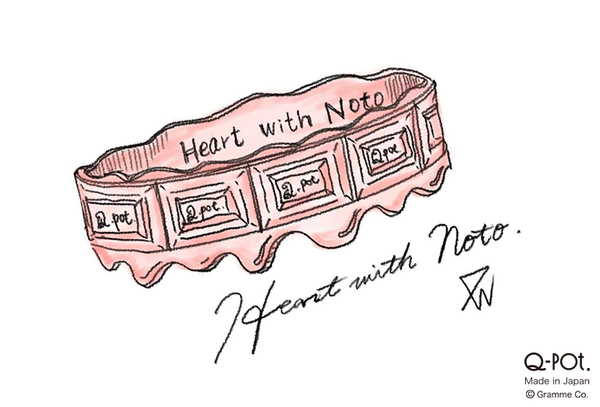 Heart with Noto
Q-pot
Q-pot
Q-pot
Q-pot
Heart with Noto.
Q-POT.
Made in Japan
© Gramme Co.